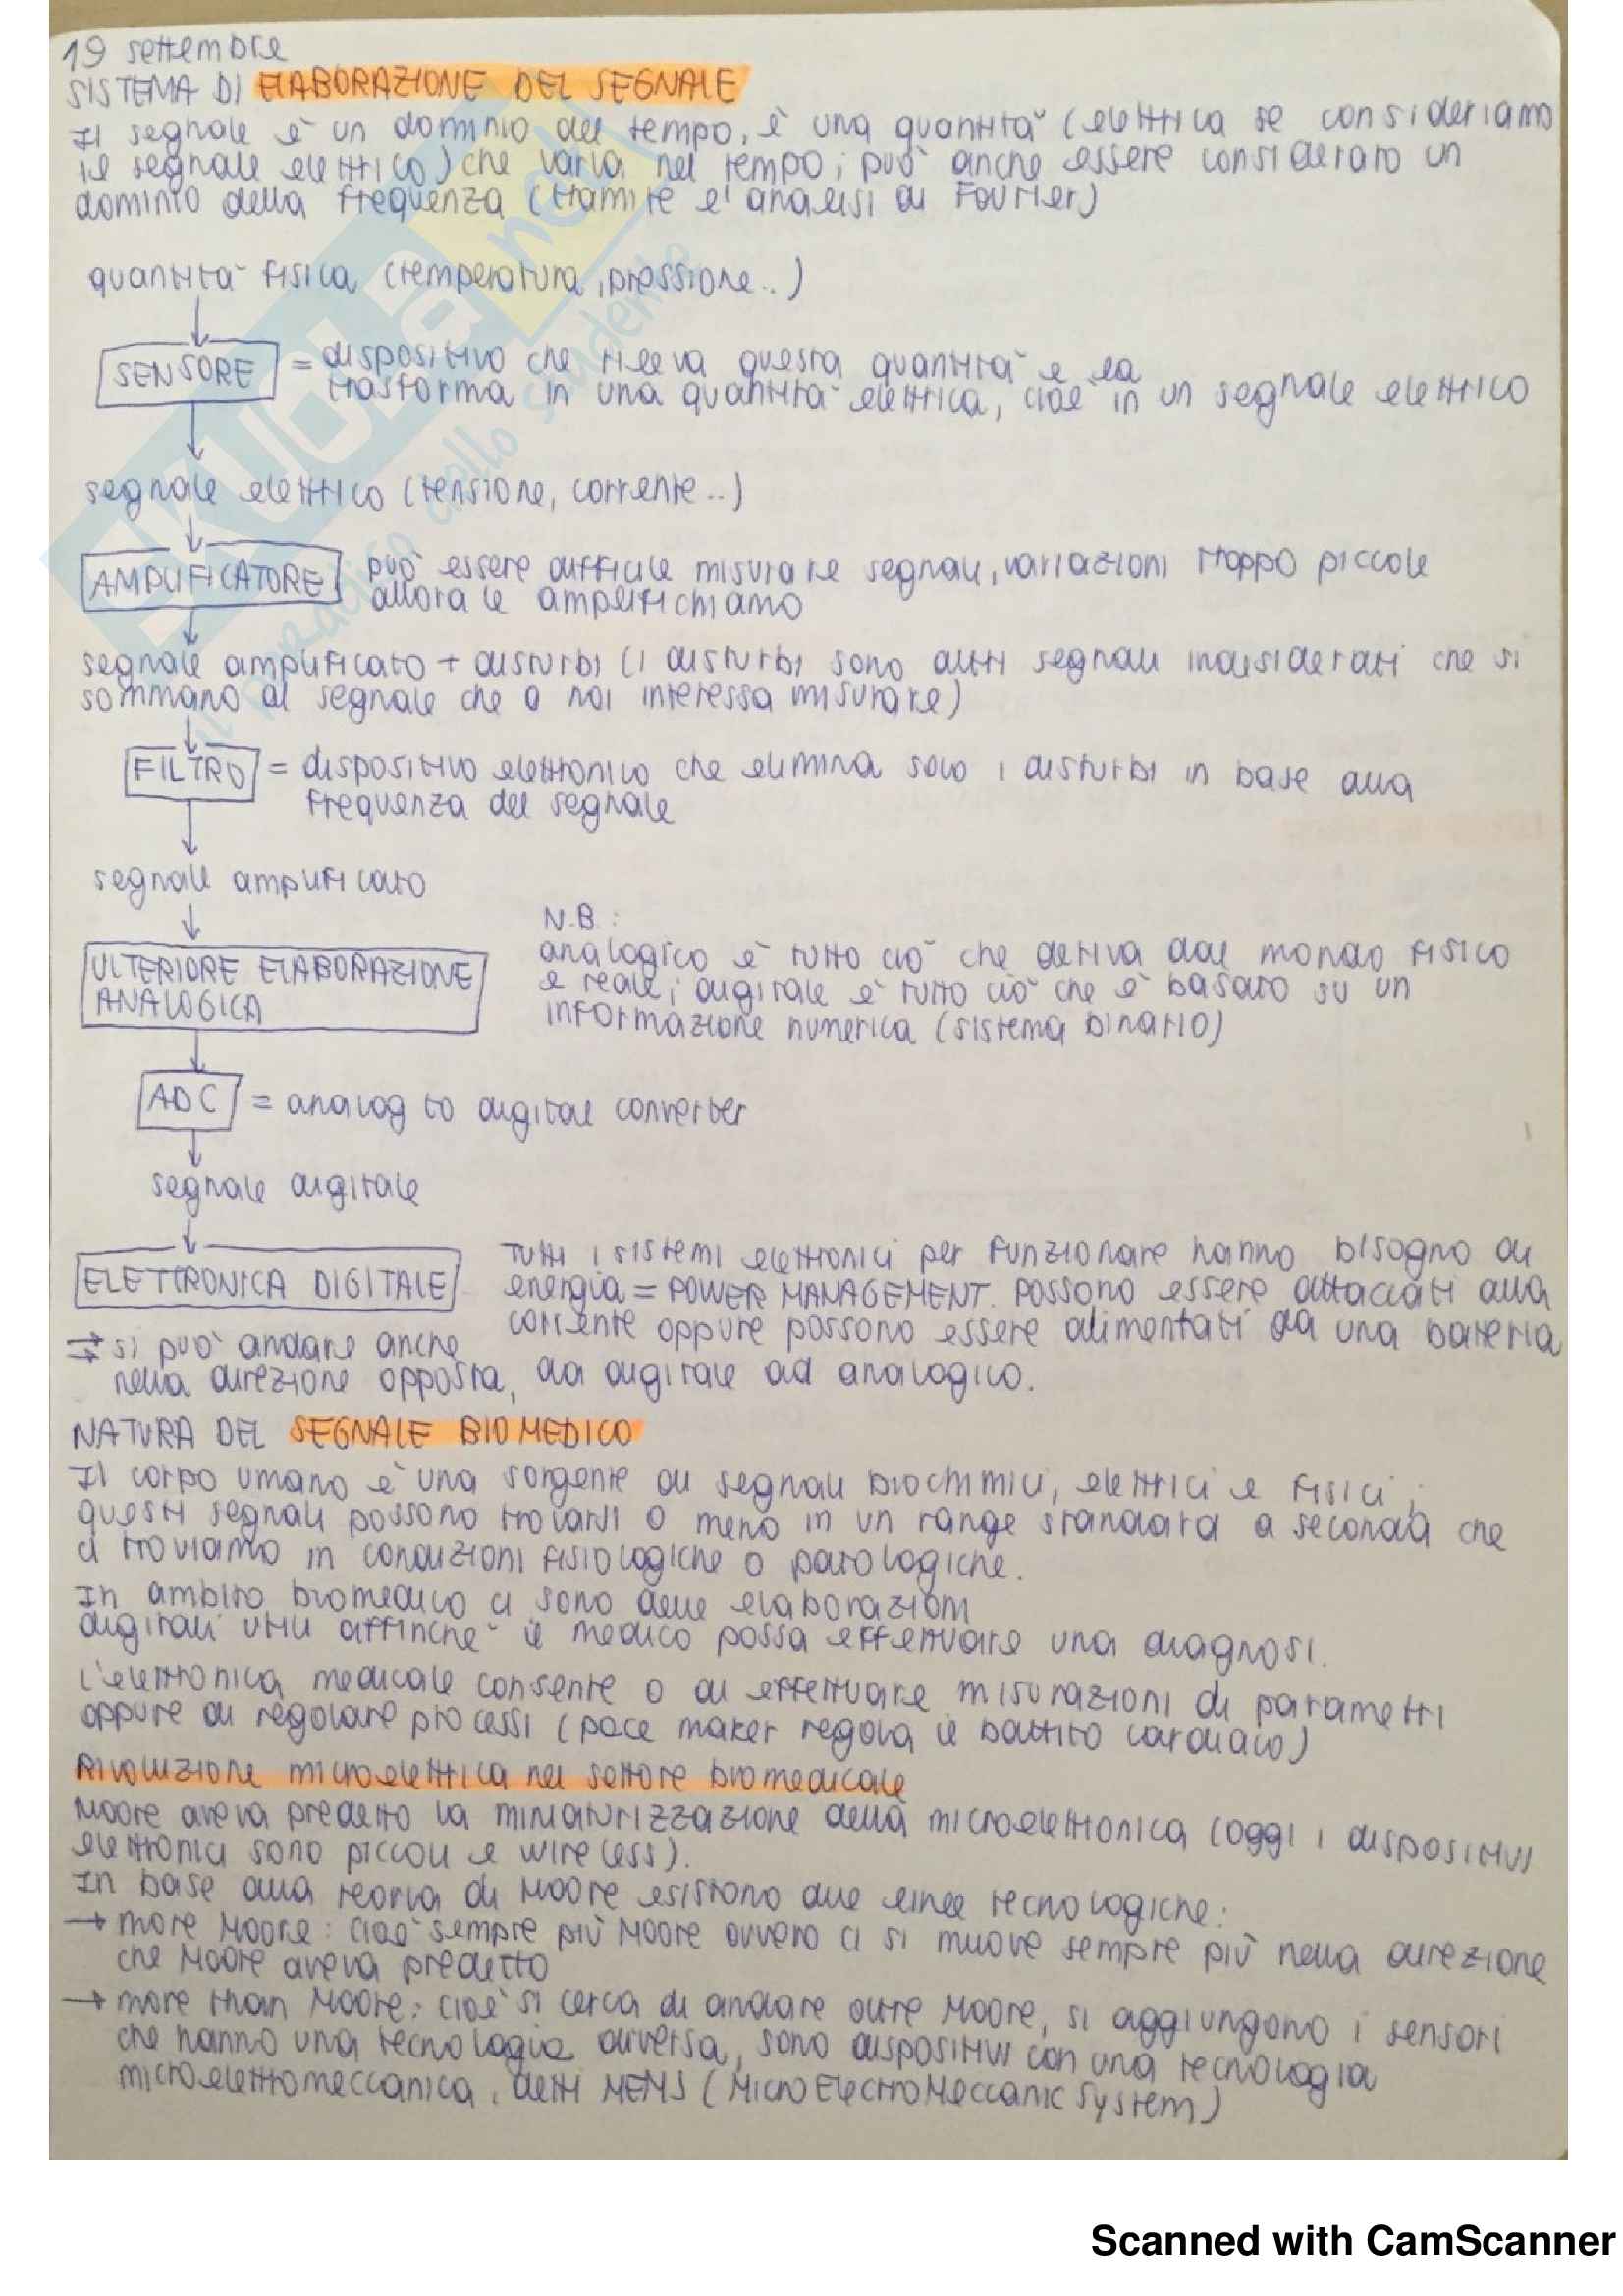 19 settembre
SISTEMA DI ELABORAZIONE DEL SEGNALE
Il segnale è un dominio del tempo, è una quantità (elettrica se consideriamo
il segnale elettrico) che varia nel tempo; può anche essere considerato un
dominio della frequenza (tramite l'analisi di Fourier)
quantità fisica (temperatura, pressione..)
SENSORE = dispositivo che rileva questa quantità e la
trasforma in una quantità elettrica, cioè in un segnale elettrico
segnale elettrico (tensione, corrente..)
AMPLIFICATORE può essere difficile misurare segnali, variazioni troppo piccole
allora le amplifichiamo
segnale amplificato + disturbi (i disturbi sono altri segnali indesiderati che si
sommano al segnale che a noi interessa misurare)
FILTRO = dispositivo elettronico che elimina solo i disturbi in base alla
frequenza del segnale
segnale amplificato
N.B.:
ULTERIORE ELABORAZIONE
ANALOGICA
analogico è tutto ciò che deriva dal mondo fisico
e reale; digitale è tutto ciò che è basato su un
informazione numerica (sistema binario)
ADC = analog to digital converter
segnale digitale
ELETTRONICA DIGITALE
Tutti i sistemi elettronici per funzionare hanno bisogno di
energia = POWER MANAGEMENT. Possono essere attaccati alla
corrente oppure possono essere alimentati da una batteria
si può andare anche
nella direzione opposta, da digitale ad analogico.
NATURA DEL SEGNALE BIOMEDICO
Il corpo umano è una sorgente di segnali biochimici, elettrici e fisici;
questi segnali possono trovarsi o meno in un range standard a seconda che
ci troviamo in condizioni fisiologiche o patologiche.
In ambito biomedico ci sono delle elaborazioni
digitali utili affinché il medico possa effettuare una diagnosi.
L'elettronica medicale consente o di effettuare misurazioni di parametri
oppure di regolare processi (pace maker regola il battito cardiaco)
Rivoluzione microelettrica nel settore biomedicale
Moore aveva predetto la miniaturizzazione della microelettronica (oggi i dispositivi
elettronici sono piccoli e wireless).
In base alla teoria di Moore esistono due linee tecnologiche:
→ more Moore: cioè sempre più Moore ovvero ci si muove sempre più nella direzione
che Moore aveva predetto
→ more than Moore: cioè si cerca di andare oltre Moore, si aggiungono i sensori
che hanno una tecnologia diversa, sono dispositivi con una tecnologia
microelettromeccanica, detti MEMS (MicroElectroMeccanic System)
Scanned with CamScanner